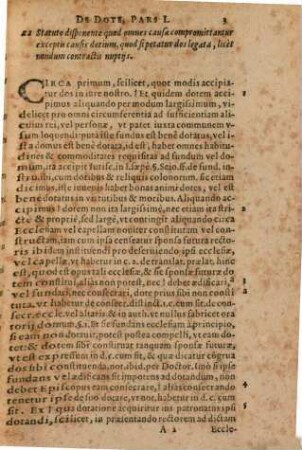 DE DOTE, PARS I. 3
22 Statuto disponente quod omnes causæ compromittantur
exceptis causis dotium, quod si petatur dos legata, licèt
nondum contractis nuptijs.
CIRCA primum, scilicet, quot modis accipia
tur dos in iure nostro. ! Et quidem dotem acci
pimus aliquando per modum largissimum, vi-
delicet pro omni circumferentia ad sufficientiam ali
cuius rei, vel personæ, vt patet iuxta communem v
sum loquendi: puta iste fundus est benè dotatus, vel i
sta domus est benè dotata, id est, habet omnes habitu-
dines & commoditates requisitas ad fundum vel do-
mum, ita accipit
stru. ibi, cum dotibus & reliquis colonorum. sic etiam
dicimus, iste iuuenis habet bonas animi dotes, vel est
benè dotatus in virtutibus & moribus. Aliquando ac-
cipimus ! dotem non ita largissimè, nec etiam ita stri
ctè & propriè, sed largè, vt contingit aliquando circa
Ecclesiam vel capellam nouiter constitutam vel con
structam, iam cum ipsa censeatur sponsa futura recto
ris ibidem instituendi pro deseruiendo ipsi ecclesiæ,
vel capellæ. vt habetur in c. 2. de translat. præ lat. po
nens, quod est opus tali ecclesiæ, & se sponsæ futuræ do
tem constitui, alias non debet ædificari,
vel fundari, nec consecrari, donec prius sibi non consti
tuta. vt habetur de consecr. distinct. 1. c. cum sit. de con-
secr. eccl. vel alta. c. 1. & in auth. vt nullus fabricet ora
torij domus. §. 1. Et se fundans ecclesiam à principio,
si eam non dotauit, potest postea compelli, vt eam do
tet: & dotem sibi constituat tanquam sponsæ futuræ,
vt est expressum in d. c. cum sit, & quæ dicatur côgrua
dos sibi constituenda, not. ibid. per Doctor. Imo si ipse
fundans vel ædificans sit impotens ad dotandum, non
debet Episcopus eam consecrare, ! alias consecrando
tenetur de proprio dotare, vt non. habetur in d. c. cum
sit. Ex ! qua dotatione acquiritur ius patronatus ipsi
dotandi, scilicet, in præsentando rectorem ad dictam
A 2 Eccle-